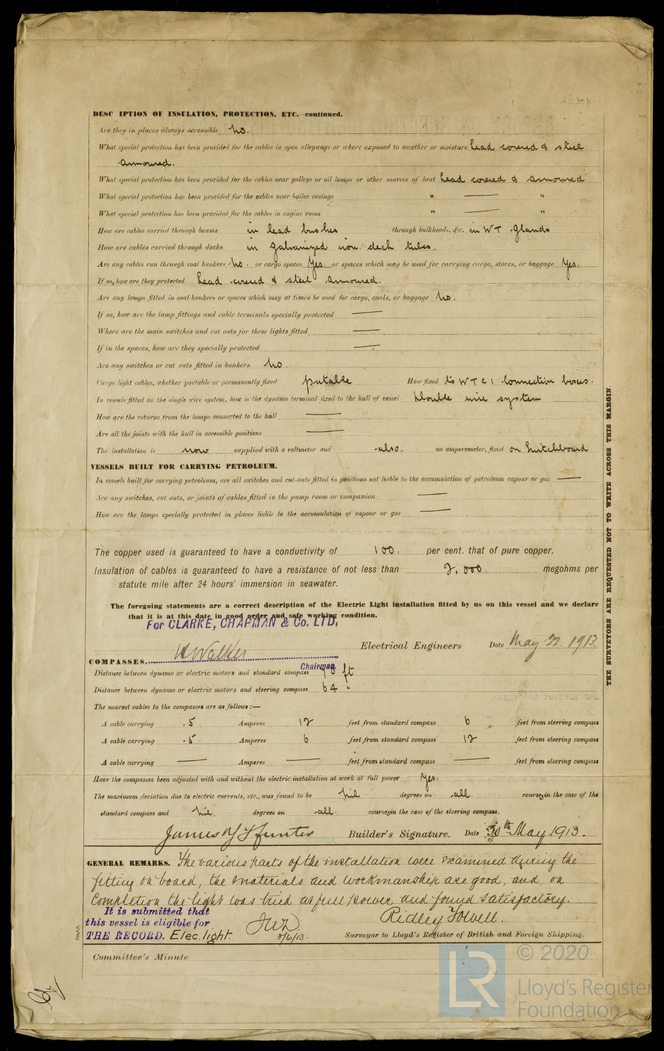 DESC IPTION OF INSULATION, PROTECTION, ETC.—continued.
Are they in places always accessible no.
What special protection has been provided for the cables in open alleyways or where exposed to weather or moisture Lead covered & steel
armoured.
What special protection has been provided for the cables near galleys or oil lamps or other sources of heat Lead covered & armoured
What special protection has been provided for the cables near boiler casings " — "
What special protection has been provided for the cables in engine room " — "
How are cables carried through beams in lead bushes through bulkheads, &c. in WT glands
How are cables carried through decks in galvanized iron deck tubes.
Are any cables run through coal bunkers no. or cargo spaces Yes or spaces which may be used for carrying cargo, stores, or baggage Yes.
If so, how are they protected Lead covered & steel armoured.
Are any lamps fitted in coal bunkers or spaces which may at times be used for cargo, coals, or baggage no.
If so, how are the lamp fittings and cable terminals specially protected —
Where are the main switches and cut outs for these lights fitted —
If in the spaces, how are they specially protected —
Are any switches or cut outs fitted in bunkers no.
Cargo light cables, whether portable or permanently fixed portable How fixed to WTCI connection boxes.
In vessels fitted on the single wire system, how is the dynamo terminal fixed to the hull of vessel Double wire system
How are the returns from the lamps connected to the hull —
Are all the joints with the hull in accessible positions —
The installation is now supplied with a voltmeter and also. an amperemeter, fixed on Switchboard
VESSELS BUILT FOR CARRYING PETROLEUM.
In vessels built for carrying petroleum, are all switches and cut-outs fitted in positions not liable to the accumulation of petroleum vapour or gas —
Are any switches, cut outs, or joints of cables fitted in the pump room or companion —
How are the lamps specially protected in places liable to the accumulation of vapour or gas —
The copper used is guaranteed to have a conductivity of 100. per cent. that of pure copper.
Insulation of cables is guaranteed to have a resistance of not less than 2,000 megohms per
statute mile after 24 hours' immersion in seawater.
The foregoing statements are a correct description of the Electric Light installation fitted by us on this vessel and we declare
that it is at this date in good order and safe working condition.
For CLARKE, CHAPMAN & Co. LTD,
W Walker Electrical Engineers Date May 22. 1913.
Chairman
COMPASSES.
Distance between dynamo or electric motors and standard compass ft
Distance between dynamo or electric motors and steering compass 64 "
The nearest cables to the compasses are as follows:—
A cable carrying .5 Amperes 12 feet from standard compass 6 feet from steering compass
A cable carrying .5 Amperes 6 feet from standard compass 12 feet from steering compass
A cable carrying — Amperes — feet from standard compass — feet from steering compass
Have the compasses been adjusted with and without the electric installation at work at full power Yes.
The maximum deviation due to electric currents, etc., was found to be Nil degrees on all courses in the case of the
standard compass and Nil degrees on all courses in the case of the steering compass.
Builder's Signature. Date 30th May 1913.
GENERAL REMARKS. The various parts of the installation were examined during the
fitting on board, the materials and workmanship are good, and on
completion the light was tried at full power and found satisfactory.
It is submitted that
this vessel is eligible for
THE RECORD. Elec. light. 3/6/13.
Ridley Towell.
Surveyor to Lloyd's Register of British and Foreign Shipping.
Committee's Minute
THE SURVEYORS ARE REQUESTED NOT TO WRITE ACROSS THIS MARGIN.
© 2020
LR
Lloyd's Register
Foundation